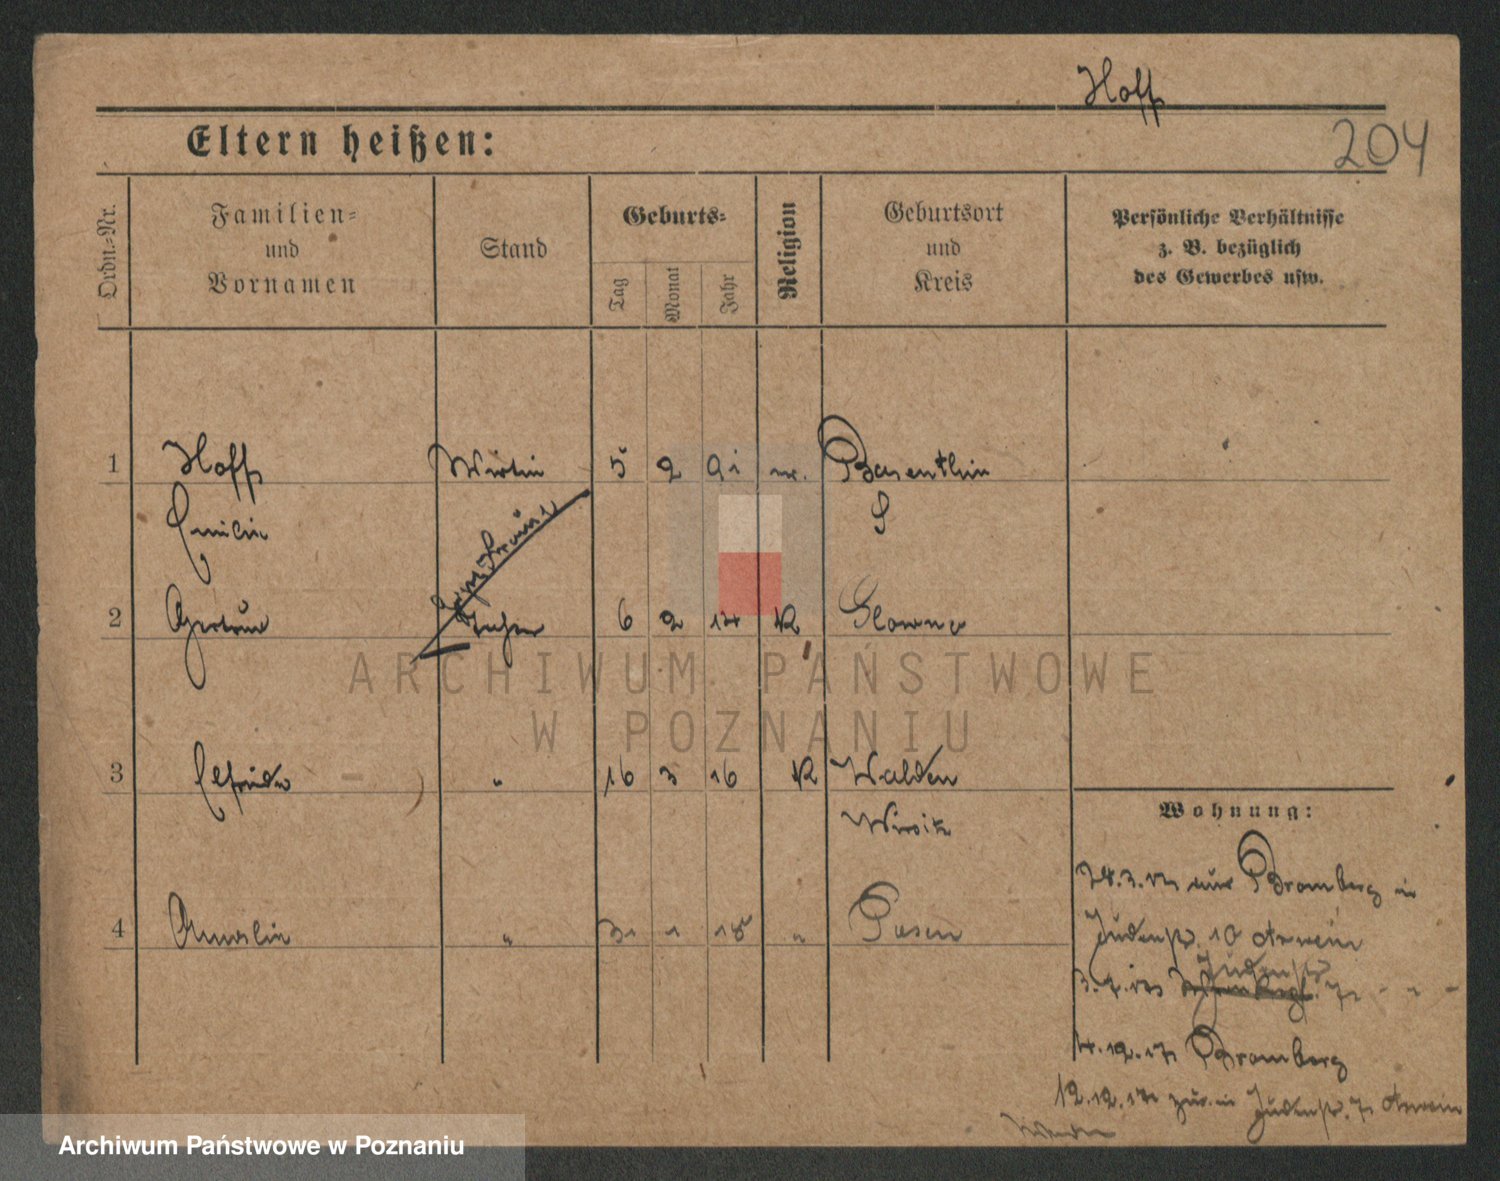 Hoff
204
Eltern heißen:
Ordn.-Nr.
Familien-
und
Vornamen
Stand
Geburts-
Tag
Monat
Jahr
Religion
Geburtsort
und
Kreis
Persönliche Verhältnisse
z. B. bezüglich
des Gewerbes usw.
1 Hoff Wirtin 5 2 91
Emilie
2 Gertrud Tochter 6 2 14 K Glowno
3 Elfriede " 16 3 16 K Walden
Wirsitz
4 " 31 1 18 " Posen
Wohnung:
aus Bromberg in
Judenstr. 10
Judenstr.
4.12.17 Bromberg
12.12.17 zur. in Judenstr. 7
ARCHIWUM PAŃSTWOWE
W POZNANIU
Archiwum Państwowe w Poznaniu